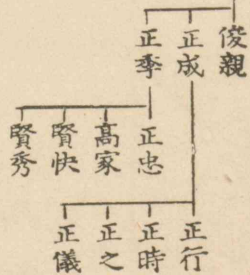 俊親
正成
正季
正忠
高家
賢快
賢秀
正行
正時
正之
正儀